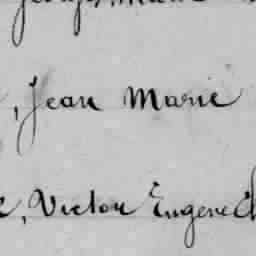 , Jean Marie
, Victor Eugene